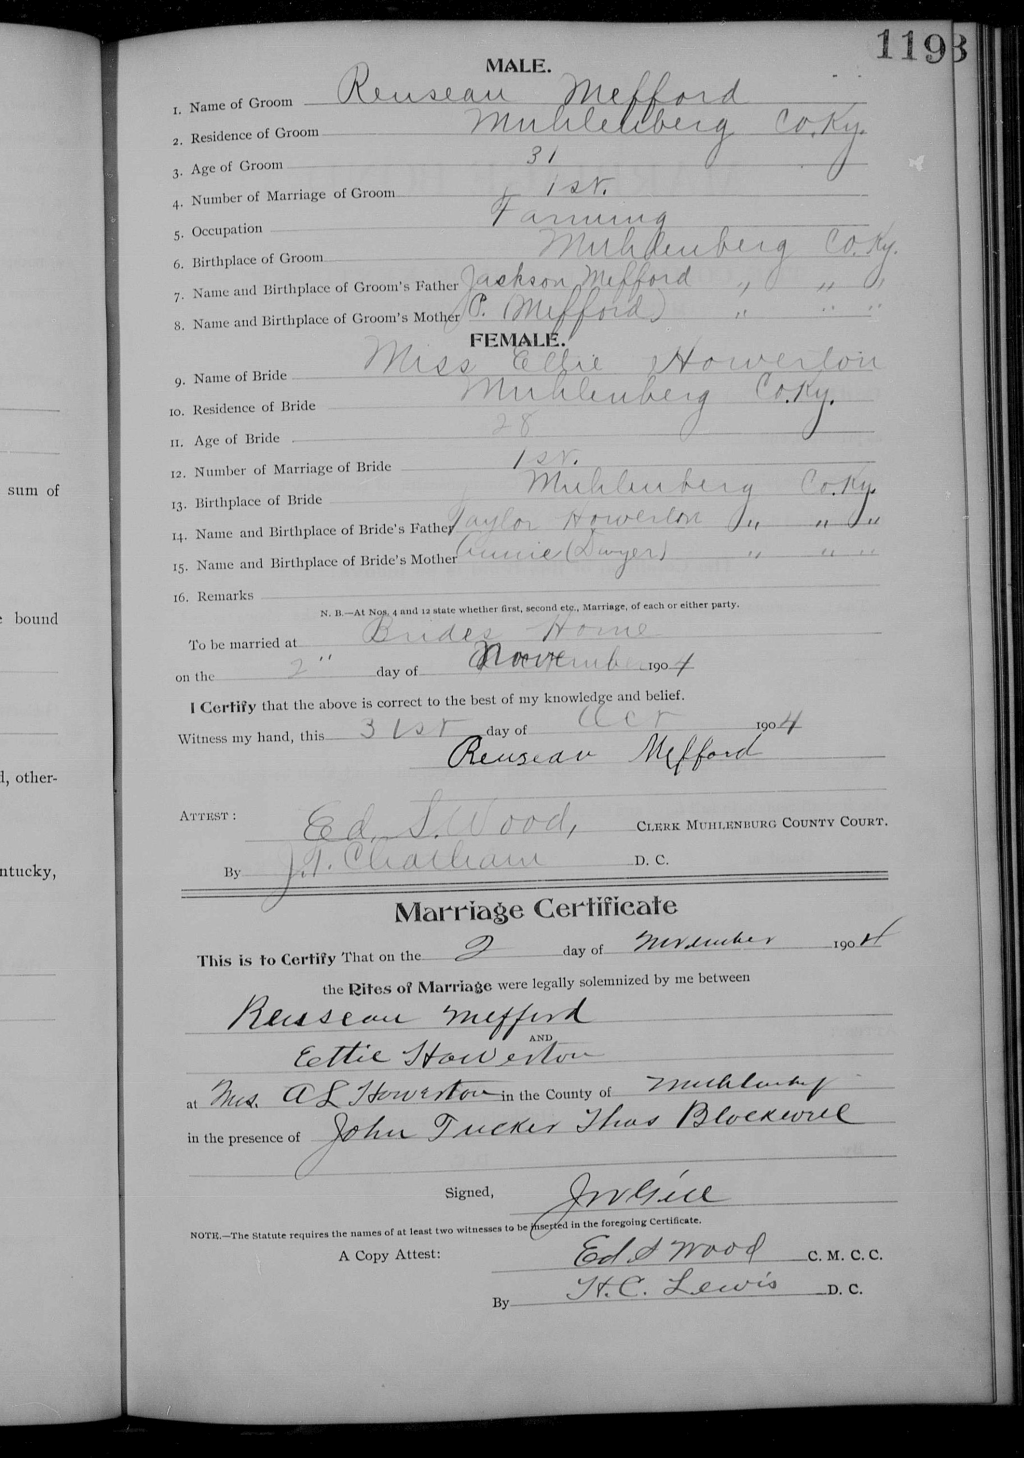 1193
MALE.
1. Name of Groom Reuseau Mefford
2. Residence of Groom Muhlenberg Co. Ky.
3. Age of Groom 31
4. Number of Marriage of Groom 1st.
5. Occupation Farming
6. Birthplace of Groom Muhlenberg Co. Ky.
7. Name and Birthplace of Groom's Father Jackson Mefford " " "
8. Name and Birthplace of Groom's Mother P. (Mefford) " " "
FEMALE.
9. Name of Bride Miss Ettie Howerton
10. Residence of Bride Muhlenberg Co. Ky.
11. Age of Bride 28
12. Number of Marriage of Bride 1st.
13. Birthplace of Bride Muhlenberg Co. Ky.
14. Name and Birthplace of Bride's Father Taylor Howerton " " "
15. Name and Birthplace of Bride's Mother Annie (Dwyer) " " "
16. Remarks
N. B.—At Nos. 4 and 12 state whether first, second etc., Marriage, of each or either party.
To be married at Brides Home
on the 2" day of November 1904
I Certify that the above is correct to the best of my knowledge and belief.
Witness my hand, this 31st day of Oct 1904
Reuseau Mefford
ATTEST: Ed. S. Wood, CLERK MUHLENBURG COUNTY COURT.
By J.T. Chatham D. C.
Marriage Certificate
This is to Certify That on the 2 day of November 1904
the Rites of Marriage were legally solemnized by me between
Reuseau Mefford
AND
Eettie Howerton
at Mrs. A L Howerton in the County of Muhlenberg
in the presence of John Tucker Thos Blackwell
Signed, J W Gill
NOTE.—The Statute requires the names of at least two witnesses to be inserted in the foregoing Certificate.
A Copy Attest: Ed S Wood C. M. C. C.
By H. C. Lewis D. C.
sum of
bound
l, other-
ntucky,